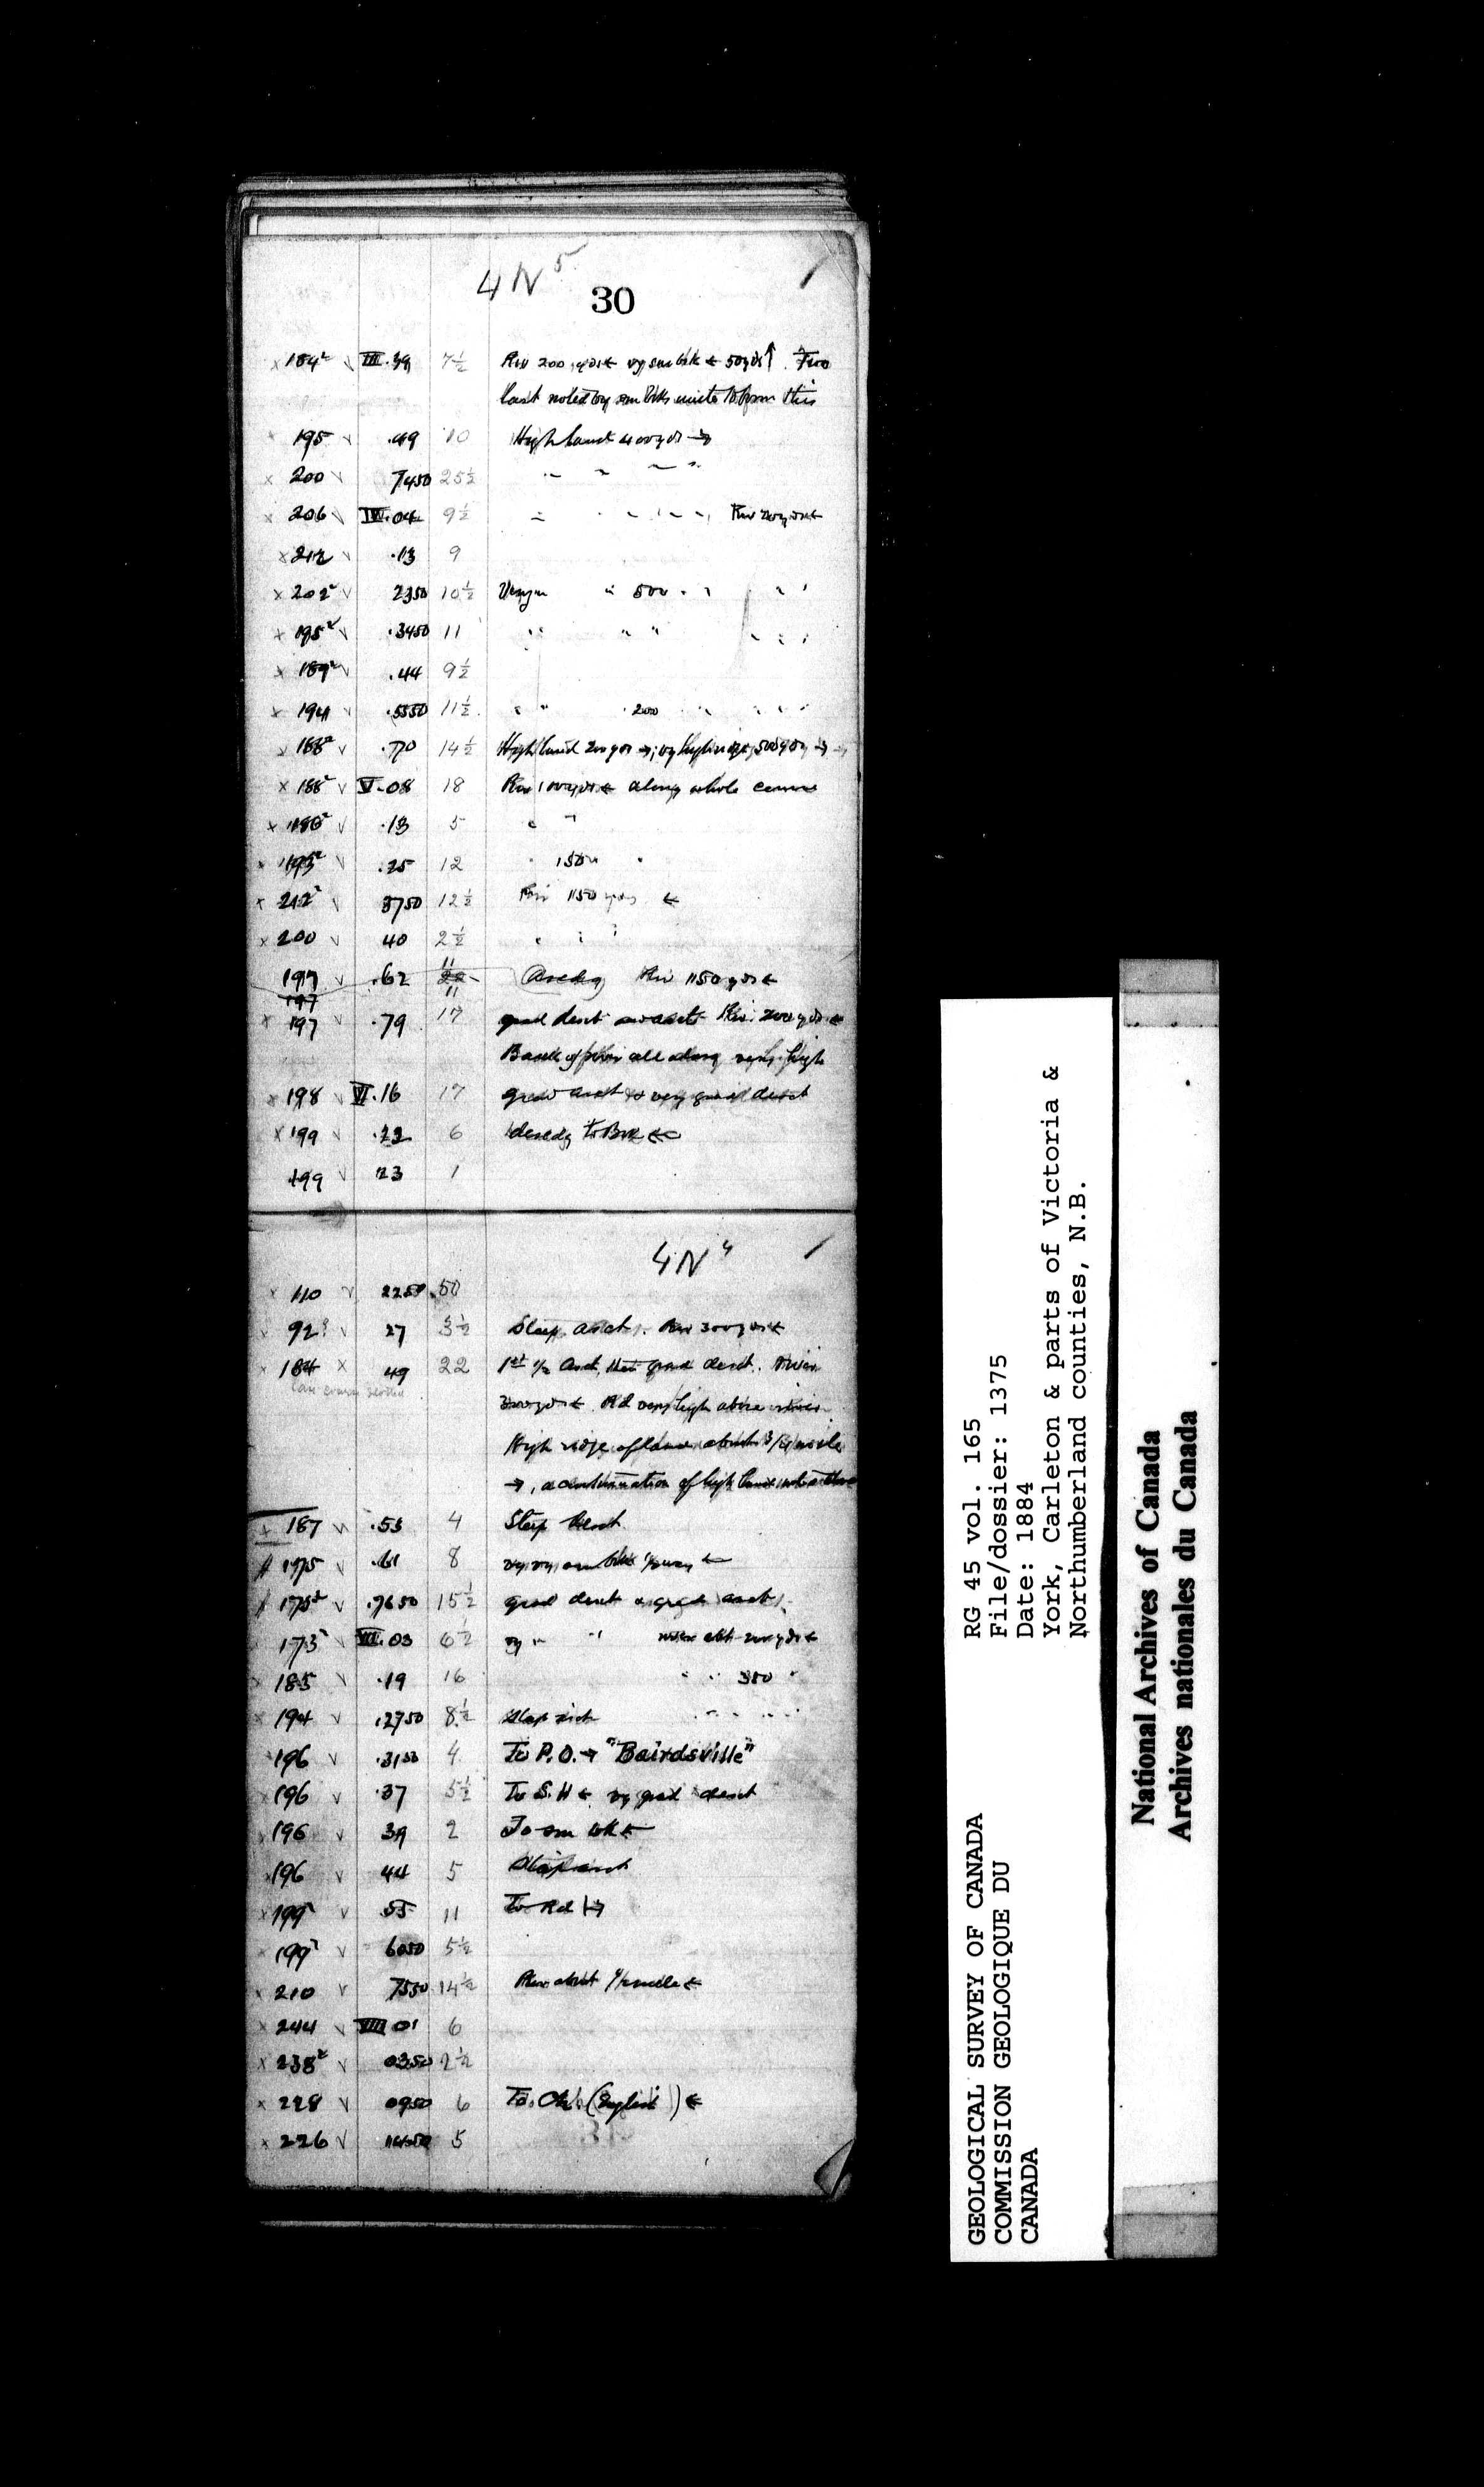 4N⁵
30
184² III.39 7½ Riv 200 yds ← vy sm brk ← 50 yds ↑. Two
last noted vy sm brks unite to form this
195 .49 10 High land 400 yds →
200 7450 25½ " " " "
206 IV.04 9½ " " " " Riv 200 yds ←
212 .13 9
202² 2350 10½ " 500 " " " "
195² .3450 11 " " " " " "
189² .44 9½
194 .5550 11½ " " 200 " " " "
188² .70 14½ High land 200 yds →; vy high ridge 500 yds →
188² V.08 18 Riv 100 yds ← along whole course
186² .13 5 " "
193² .25 12 " 150 "
212² 3750 12½ Riv 150 yds ←
200 40 2½ " " "
197 .62 11 Ascdg Riv 150 yds ←
197 11
197 .79 17 grad desct Riv 200 yds ←
Bank of river all along very high
198 VI.16 17 grad asct & very grad desct
199 .22 6 descdg to Brk ←
199 23 1
4N⁴
110 2250 .50
92² 27 3½ Steep asct. Riv 300 yds ←
184 49 22 1st ½ asct, then grad desct. River
300 yds ←. Rd very high above river
High ridge of land about ¾ mile
→, a continuation of high land noted above
187 .53 4 Steep desct
175 .61 8 vy vy sm brk ½ way ←
175² .7650 15½ grad desct & grad asct
173² VII.03 6½ vy " " river abt 200 yds ←
185 .19 16 " " 350 "
194 .2750 8½ Steep asct " " " "
196 .3150 4 To P.O. → "Bairdsville"
196 .37 5½ To S.H ← vy grad desct
196 39 2 To sm brk ←
196 44 5 Steep asct
199² 55 11 To Rd |→
199² 6050 5½
210 7550 14½ Riv about ½ mile ←
244 VIII 01 6
238² 0350 2½
228 0950 6 To Ch. (English) ←
226 1450 5
RG 45 vol. 165
File/dossier: 1375
Date: 1884
York, Carleton & parts of Victoria &
Northumberland counties, N.B.
GEOLOGICAL SURVEY OF CANADA
COMMISSION GEOLOGIQUE DU
CANADA
National Archives of Canada
Archives nationales du Canada